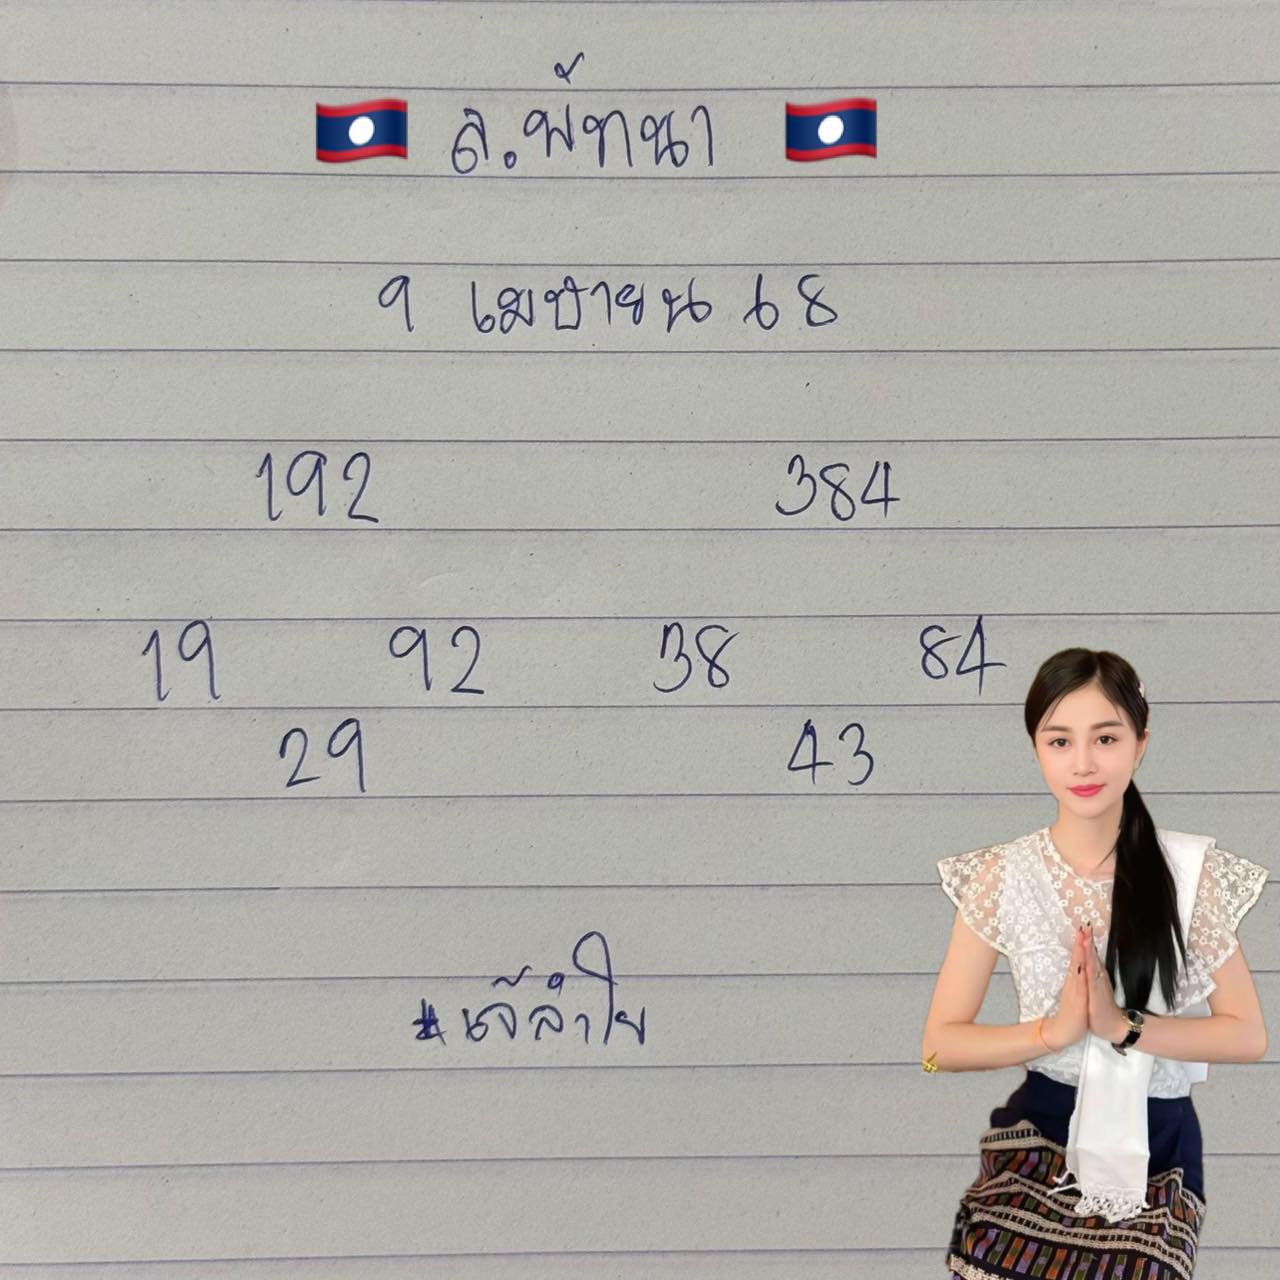 ล.พัฒนา
9 เมษายน 68
192 384
19 92 38 84
29 43
#เจ๊ลำไย